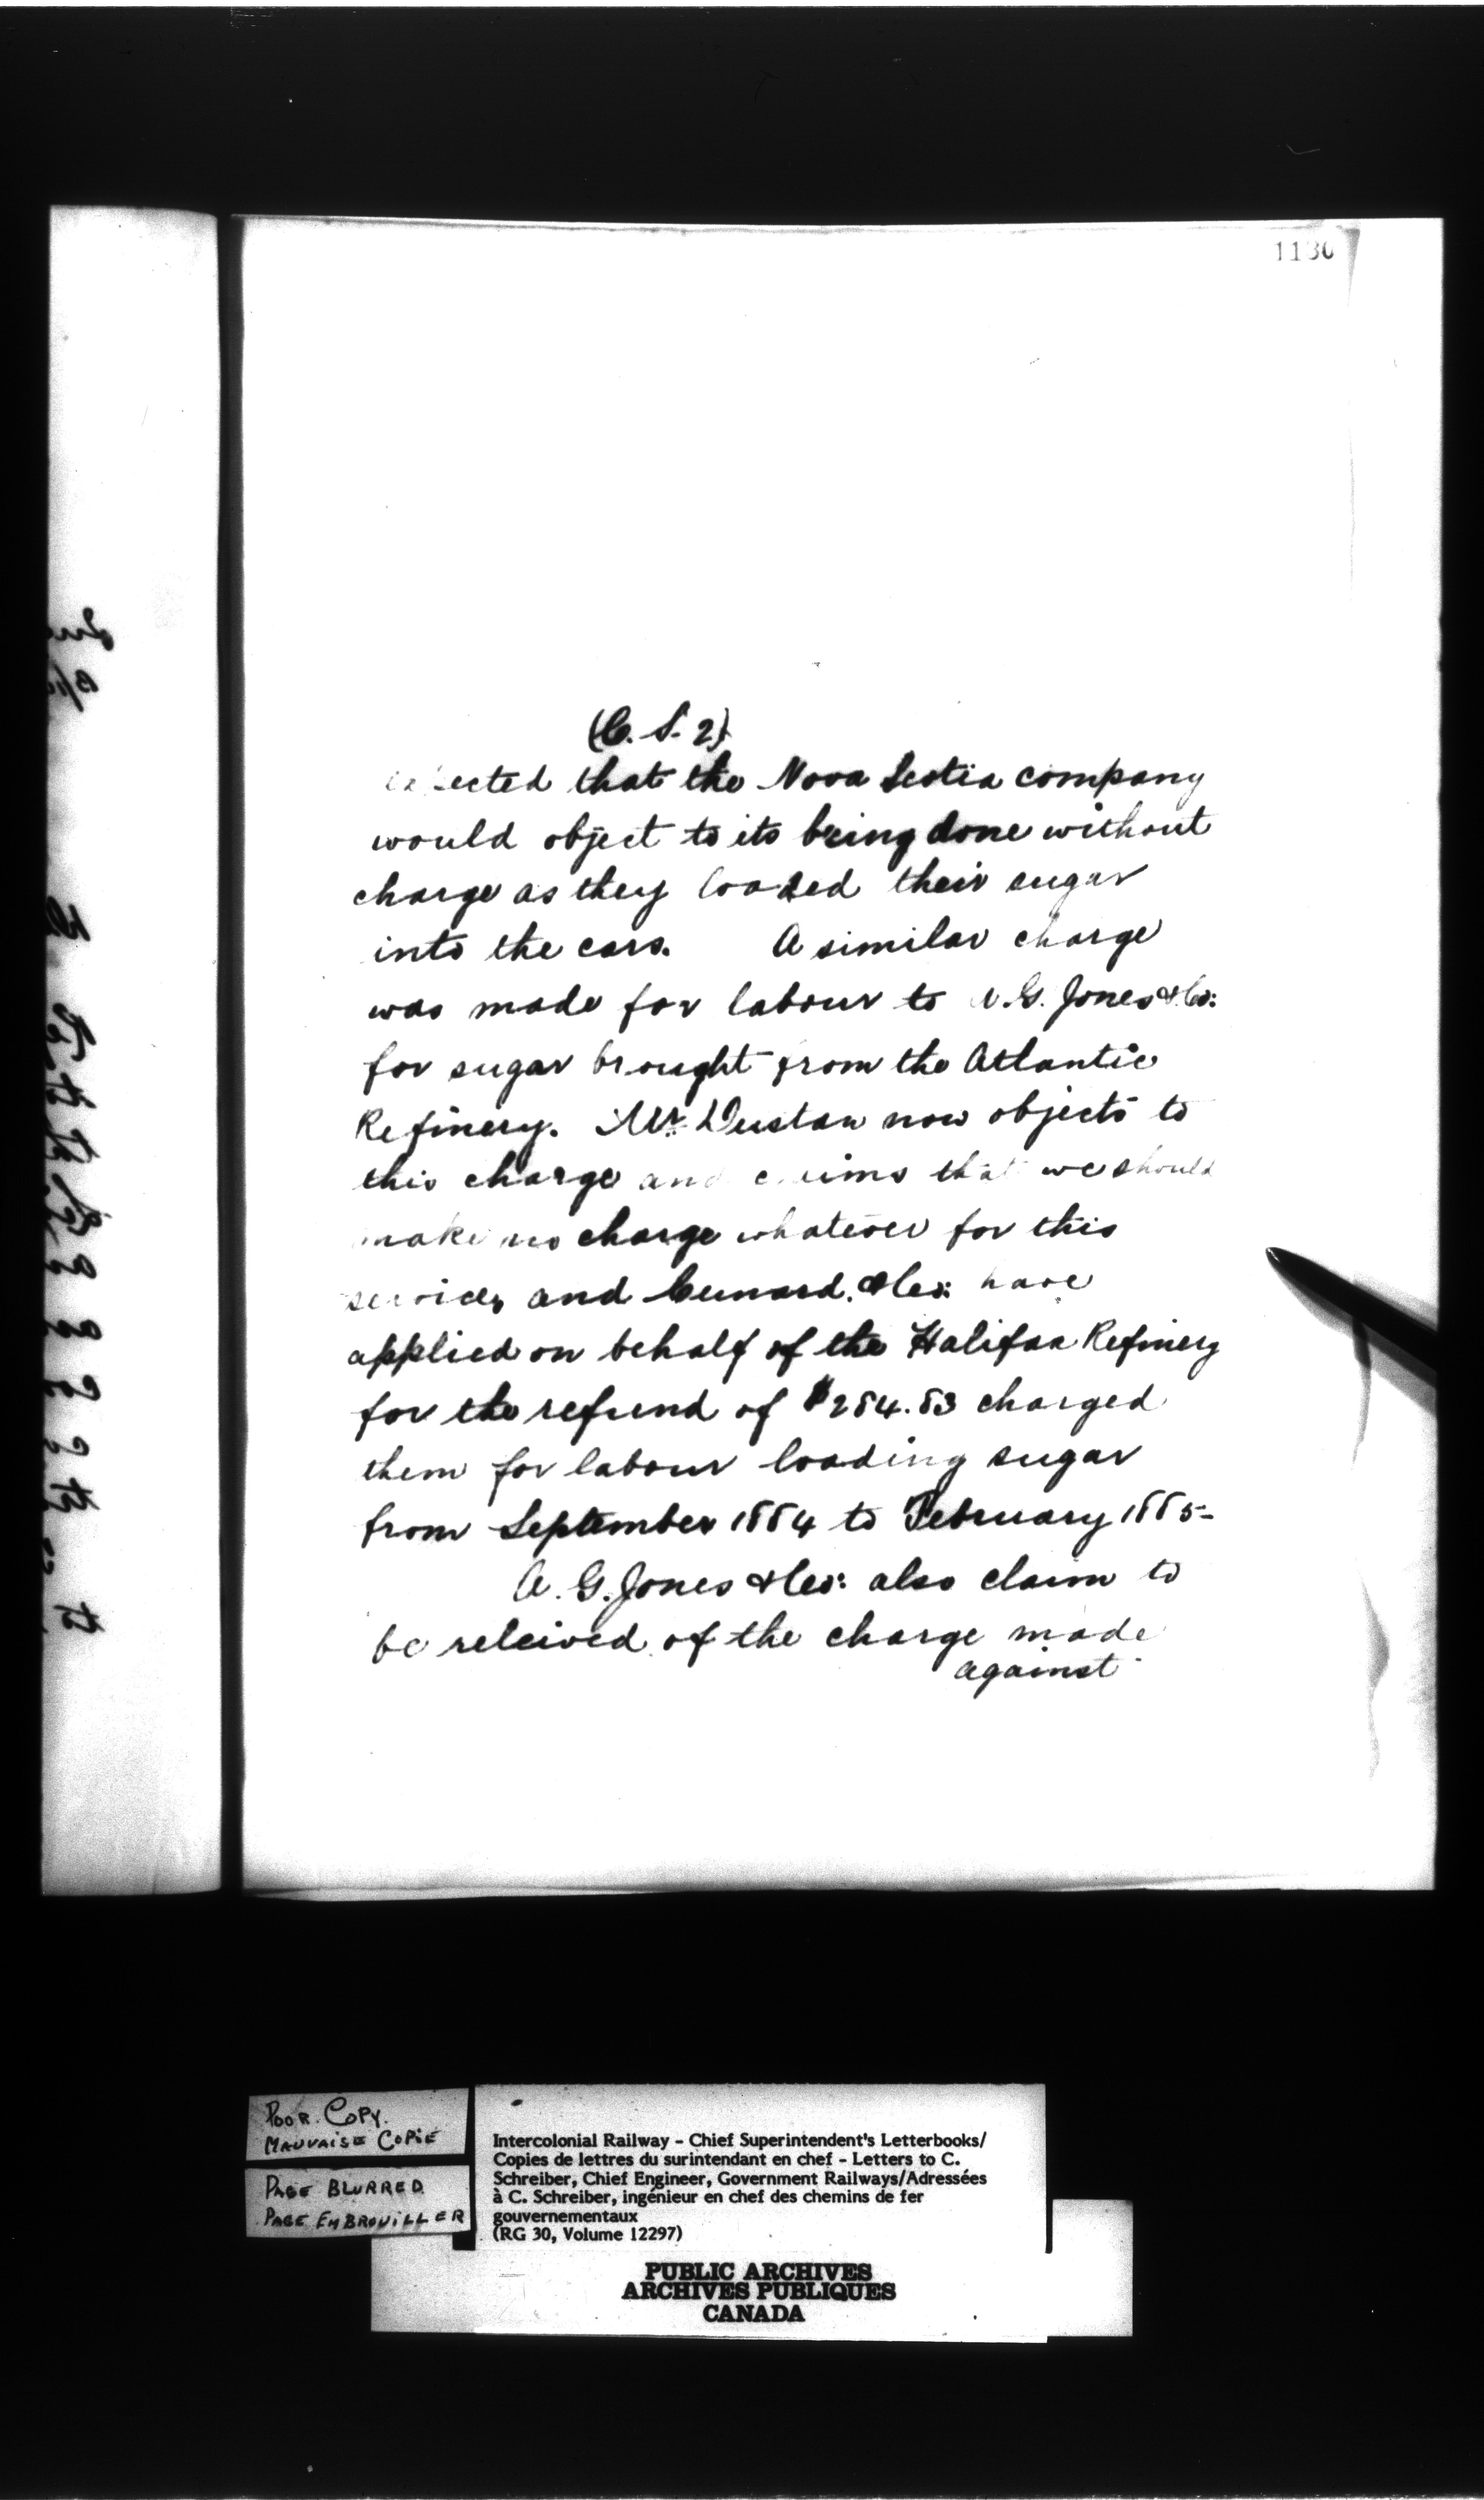 1130
(C. S. 2)
that the Nova Scotia company
would object to its being done without
charge as they loaded their sugar
into the cars. A similar charge
was made for labour to A. G. Jones & Co:
for sugar brought from the Atlantic
Refinery. Mr. Dustan now objects to
this charge and claims that we should
make no charge whatever for this
service, and Cunard & Co: have
applied on behalf of the Halifax Refinery
for the refund of $284.83 charged
them for labour loading sugar
from September 1884 to February 1885-
A. G. Jones & Co: also claim to
be releived of the charge made
against
POOR. COPY.
MAUVAISE COPIE
PAGE BLURRED.
PAGE EMBROUILLER
Intercolonial Railway - Chief Superintendent's Letterbooks/
Copies de lettres du surintendant en chef - Letters to C.
Schreiber, Chief Engineer, Government Railways/Adressées
à C. Schreiber, ingénieur en chef des chemins de fer
gouvernementaux
(RG 30, Volume 12297)
PUBLIC ARCHIVES
ARCHIVES PUBLIQUES
CANADA